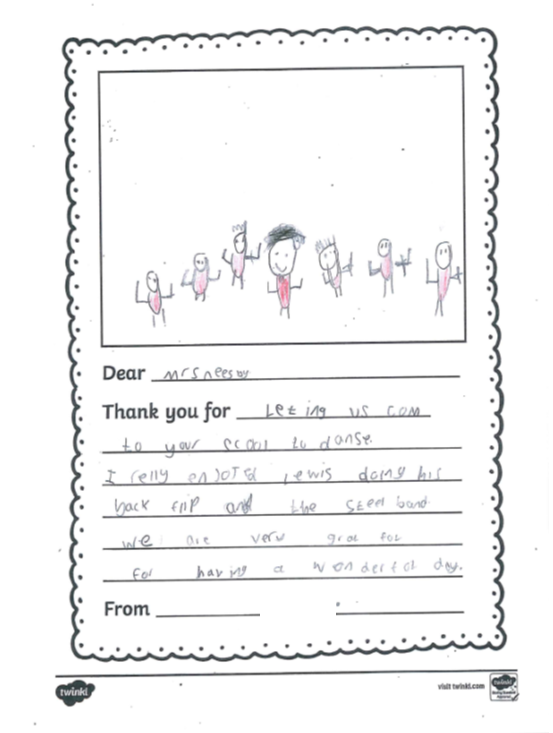 Dear mrs neesby
Thank you for Let ing us com
to your scool to danse.
I relly enjoted lewis doing his
back flip and the steel band
we are very grat for
for having a wonderful day.
From
twinkl
visit twinkl.com